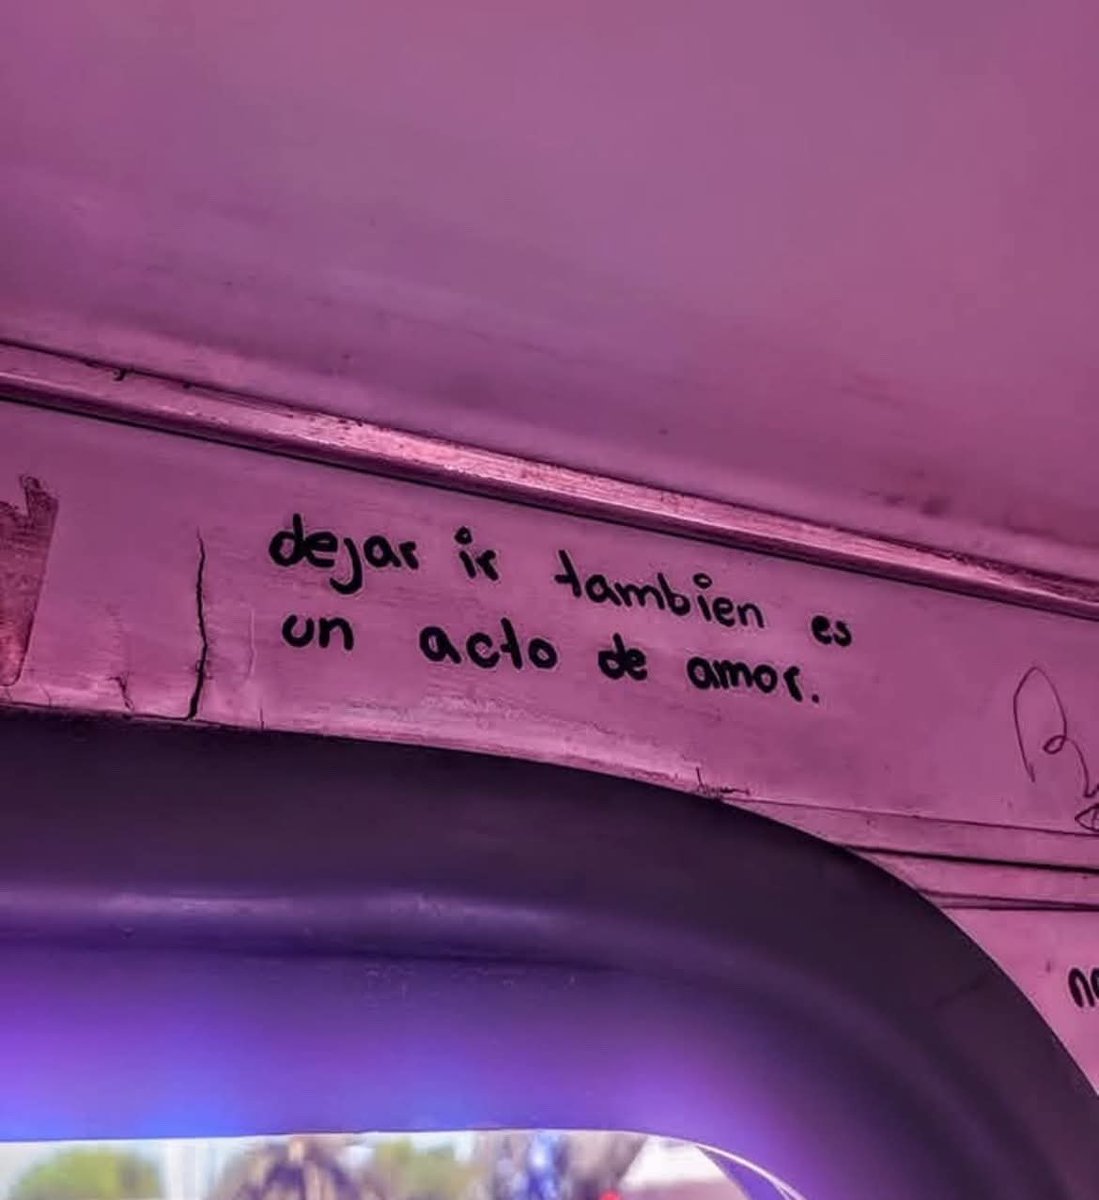 dejar ir tambien es
un acto de amor.